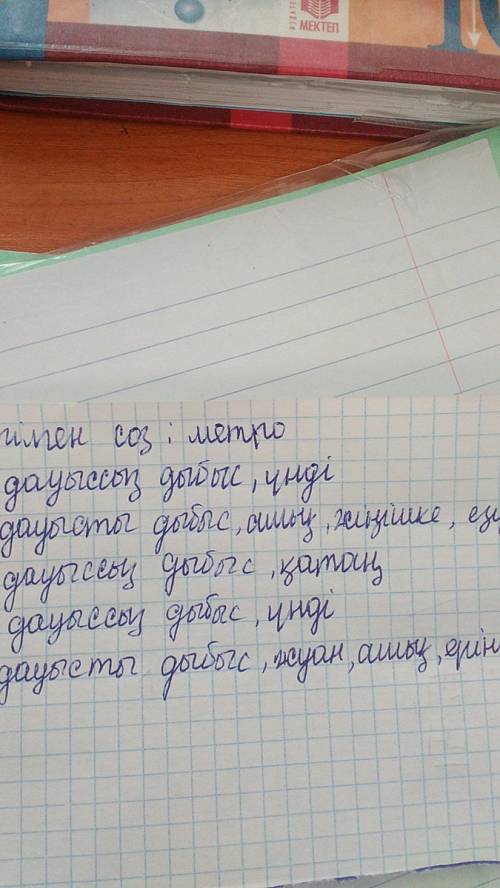 МЕКТЕП
сөз : метро
дауыссыз дыбыс, үнді
дауысты дыбыс, ашық, жіңішке,
дауыссыз дыбыс, қатаң
дауыссыз дыбыс, үнді
дауысты дыбыс, жуан, ашық,